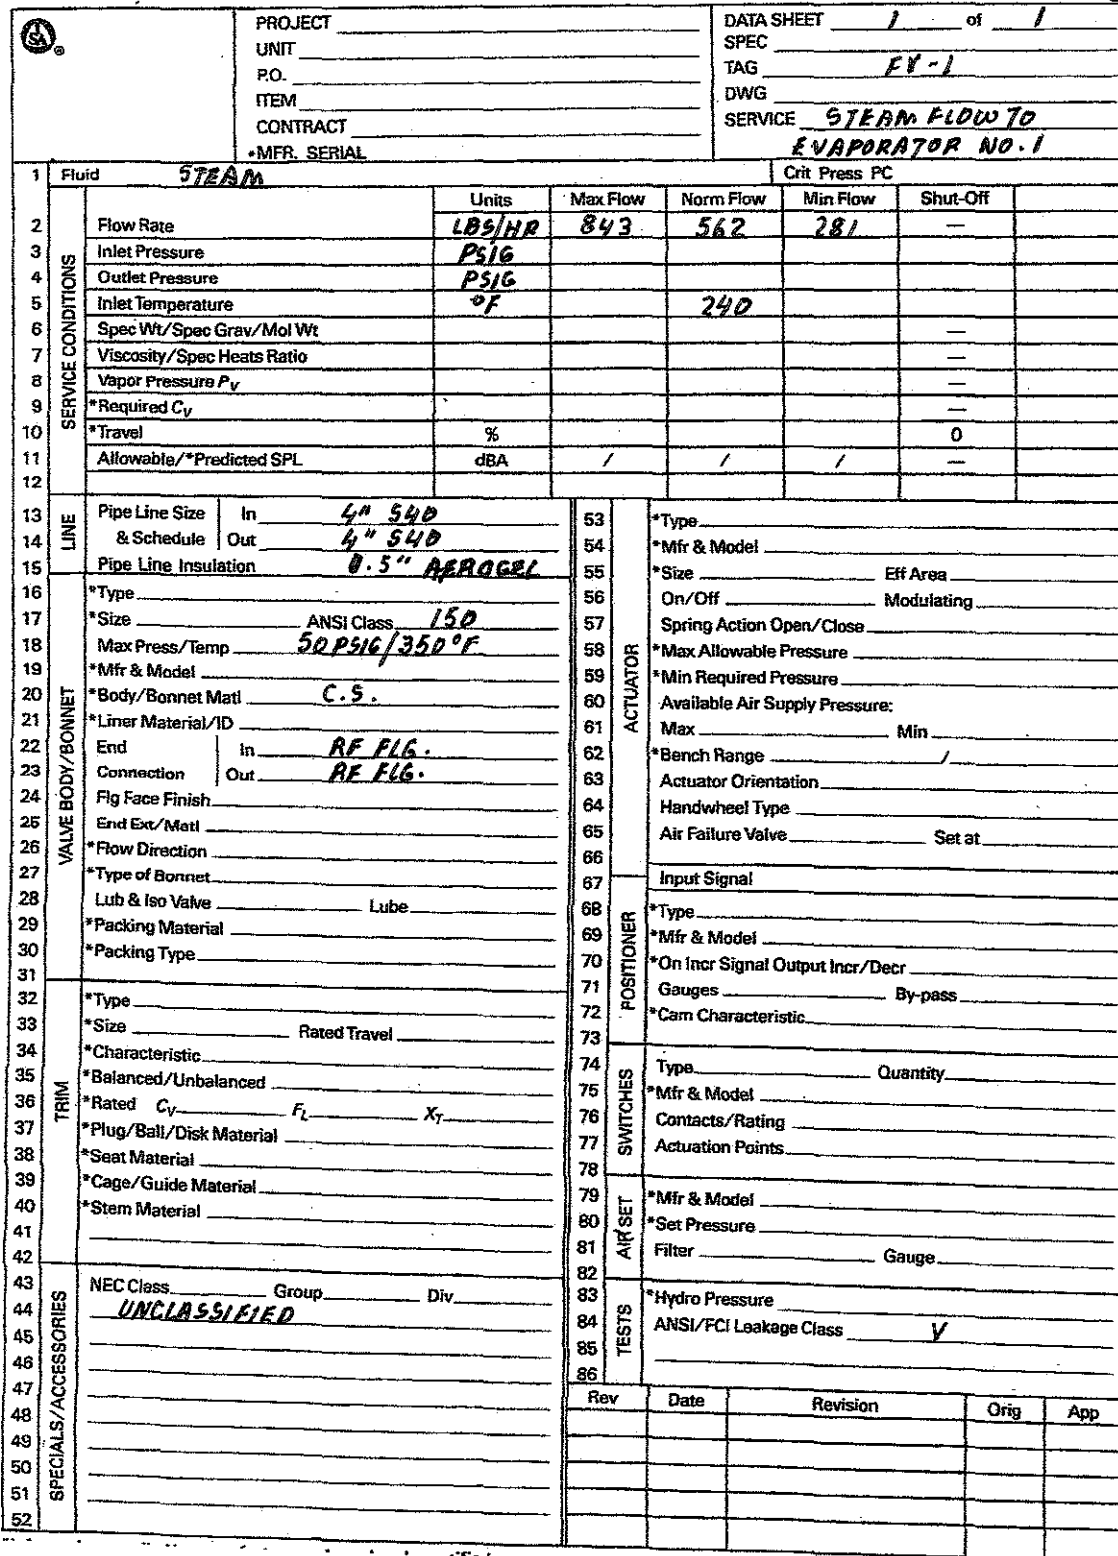 ISA ®
PROJECT
UNIT
P.O.
ITEM
CONTRACT
*MFR. SERIAL
DATA SHEET 1 of 1
SPEC
TAG FV-1
DWG
SERVICE STEAM FLOW TO
EVAPORATOR NO. 1
1 Fluid STEAM Crit Press PC
Units Max Flow Norm Flow Min Flow Shut-Off
SERVICE CONDITIONS
2 Flow Rate LBS/HR 843 562 281 —
3 Inlet Pressure PSIG
4 Outlet Pressure PSIG
5 Inlet Temperature °F 240
6 Spec Wt/Spec Grav/Mol Wt —
7 Viscosity/Spec Heats Ratio —
8 Vapor Pressure PV —
9 *Required CV —
10 *Travel % 0
11 Allowable/*Predicted SPL dBA / / / —
12
LINE
13 Pipe Line Size In 4" S40
14 & Schedule Out 4" S40
15 Pipe Line Insulation 0.5" AEROGEL
VALVE BODY/BONNET
16 *Type
17 *Size ANSI Class 150
18 Max Press/Temp 50 PSIG/350°F
19 *Mfr & Model
20 *Body/Bonnet Matl C.S.
21 *Liner Material/ID
22 End In RF FLG.
23 Connection Out RF FLG.
24 Flg Face Finish
25 End Ext/Matl
26 *Flow Direction
27 *Type of Bonnet
28 Lub & Iso Valve Lube
29 *Packing Material
30 *Packing Type
31
TRIM
32 *Type
33 *Size Rated Travel
34 *Characteristic
35 *Balanced/Unbalanced
36 *Rated CV FL XT
37 *Plug/Ball/Disk Material
38 *Seat Material
39 *Cage/Guide Material
40 *Stem Material
41
42
SPECIALS/ACCESSORIES
43 NEC Class Group Div
44 UNCLASSIFIED
45
46
47
48
49
50
51
52
ACTUATOR
53 *Type
54 *Mfr & Model
55 *Size Eff Area
56 On/Off Modulating
57 Spring Action Open/Close
58 *Max Allowable Pressure
59 *Min Required Pressure
60 Available Air Supply Pressure:
61 Max Min
62 *Bench Range /
63 Actuator Orientation
64 Handwheel Type
65 Air Failure Valve Set at
66
POSITIONER
67 Input Signal
68 *Type
69 *Mfr & Model
70 *On Incr Signal Output Incr/Decr
71 Gauges By-pass
72 *Cam Characteristic
73
SWITCHES
74 Type Quantity
75 *Mfr & Model
76 Contacts/Rating
77 Actuation Points
78
AIR SET
79 *Mfr & Model
80 *Set Pressure
81 Filter Gauge
82
TESTS
83 *Hydro Pressure
84 ANSI/FCI Leakage Class V
85
86
Rev Date Revision Orig App